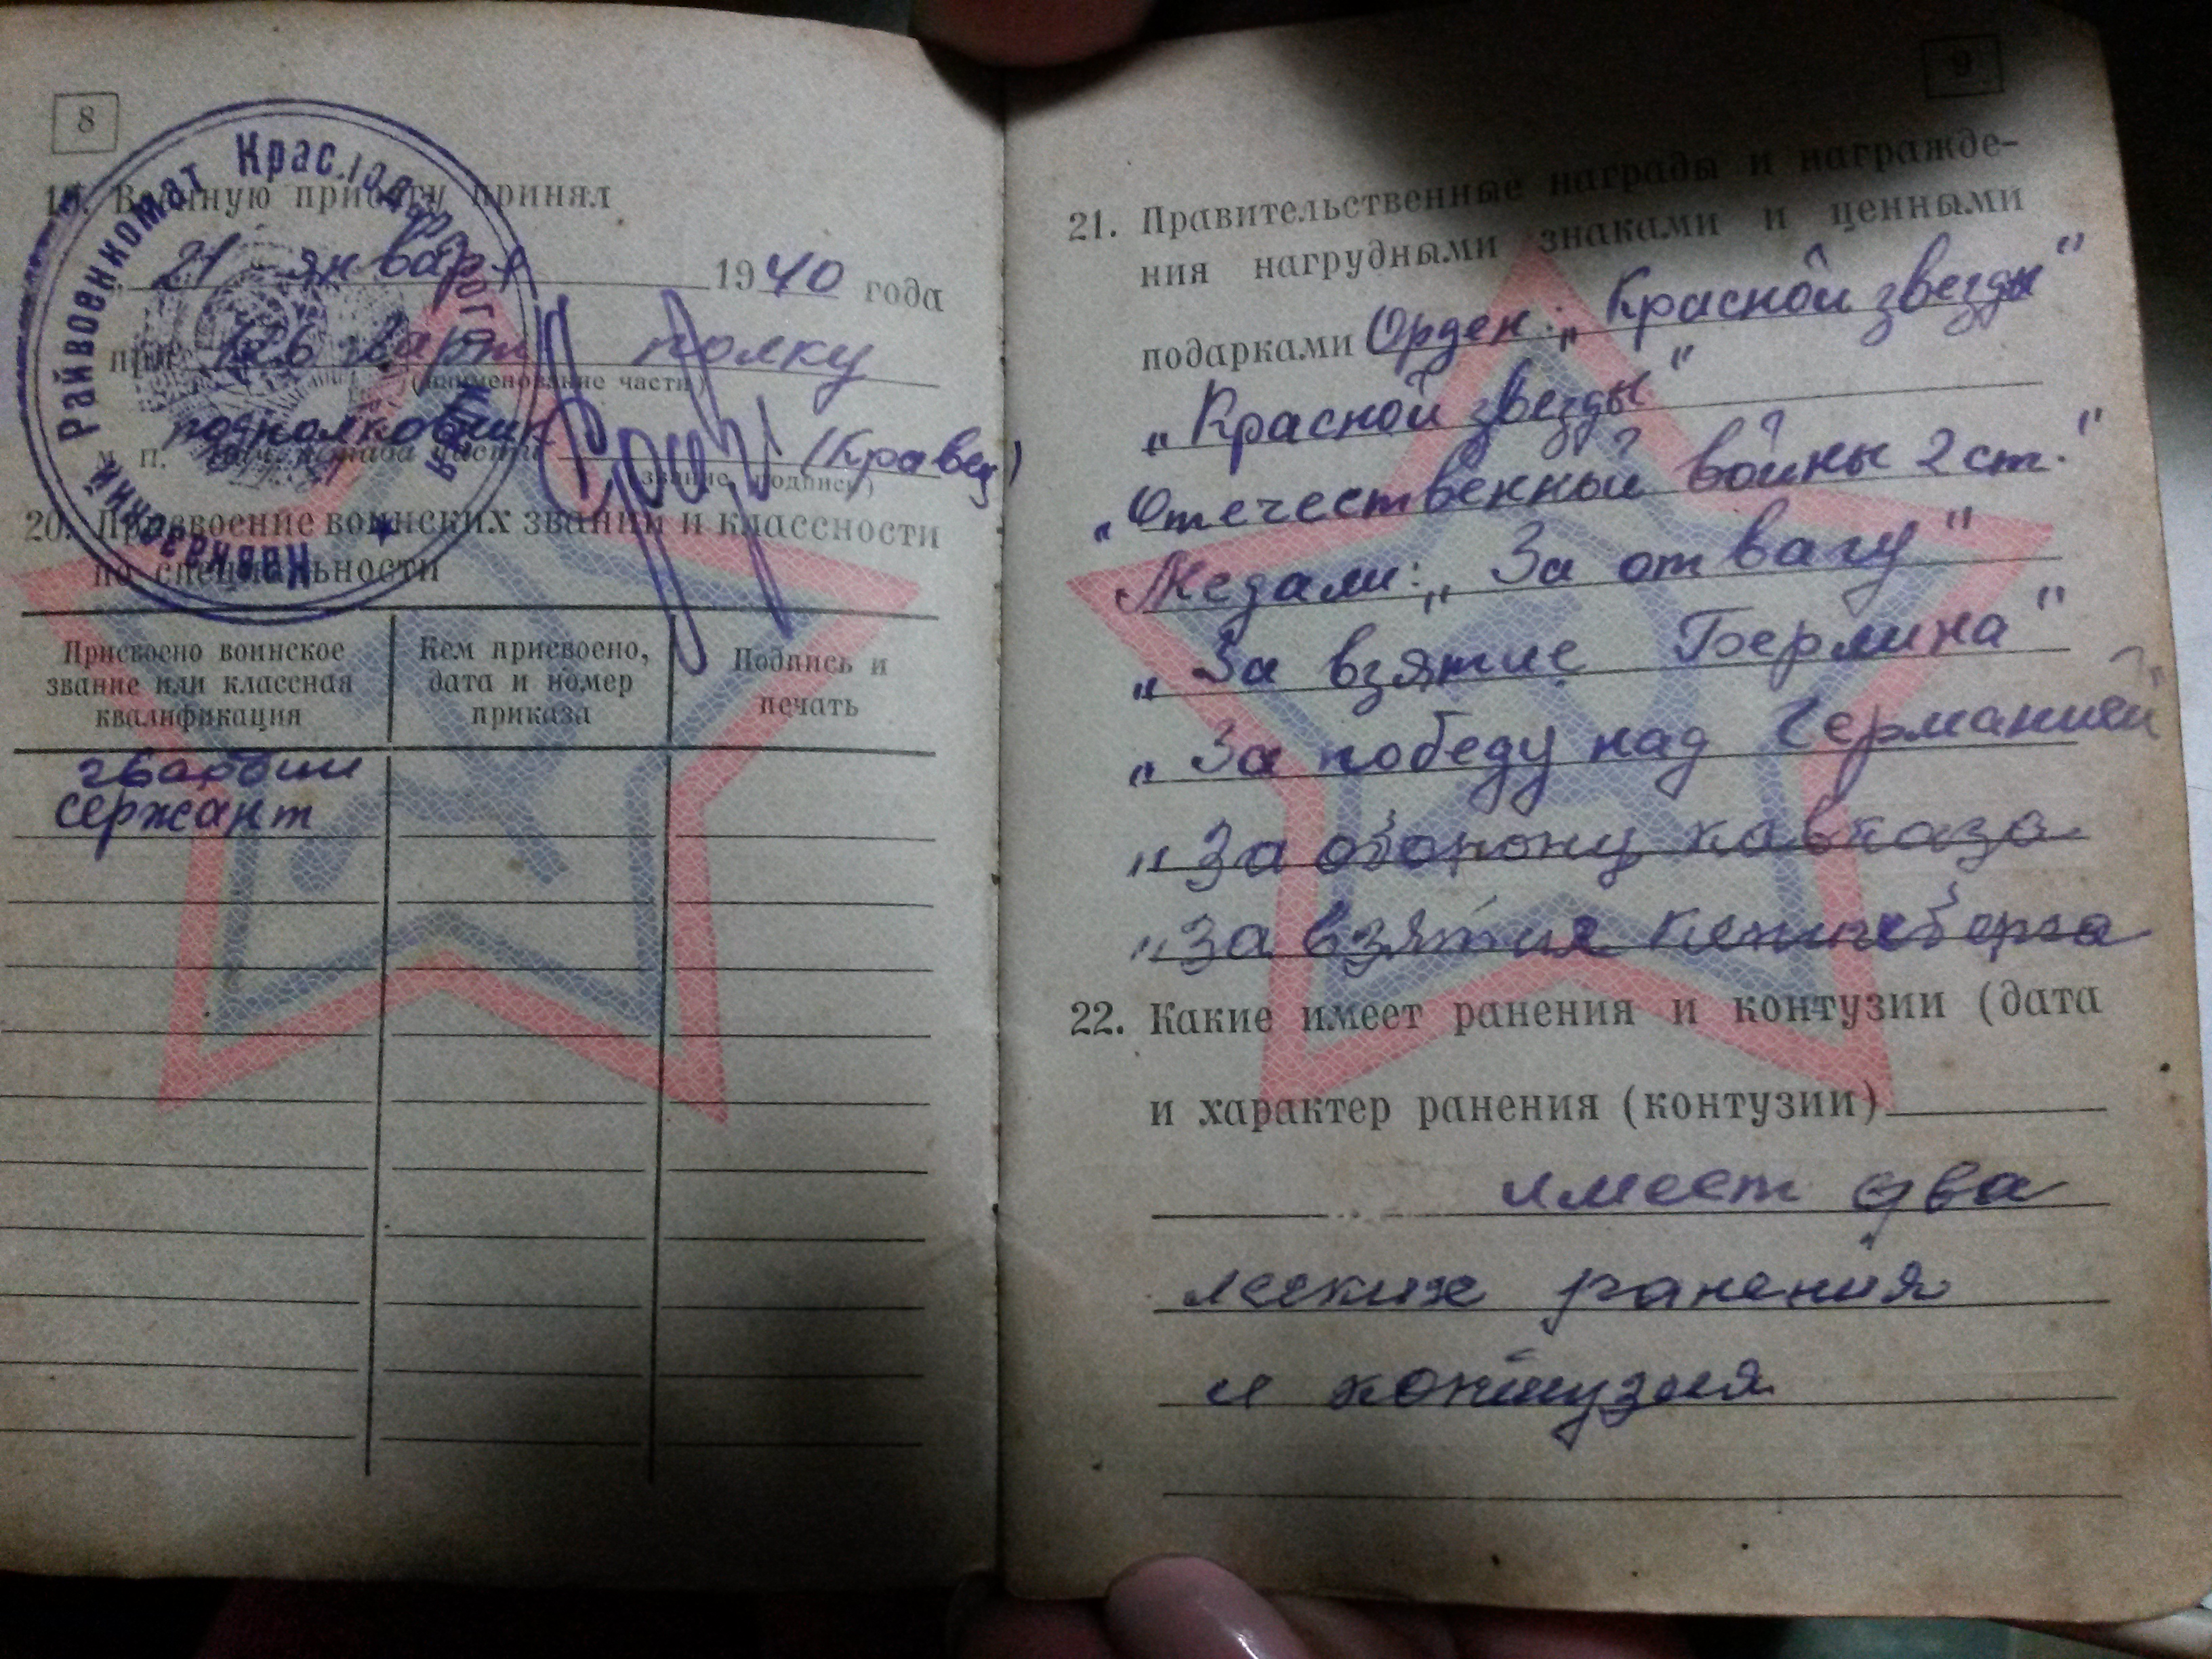 8
19. Военную присягу принял
21 января 1940 года
при 126 гварт полку
(наименование части)
подполковник
М. П. Нач. штаба части (Кравец)
(звание, подпись)
Райвоенкомат Краснодарского края
20. Присвоение воинских званий и классности
по специальности
Присвоено воинское
звание или классная
квалификация
Кем присвоено,
дата и номер
приказа
Подпись и
печать
гвардии
сержант
9
21. Правительственные награды и награжде-
ния нагрудными знаками и ценными
подарками Орден: „Красной звезды"
„Красной звезды"
„Отечественной войны 2 ст."
Медали: „За отвагу"
„За взятие Берлина"
„За победу над Германией"
„За оборону кавказа
„За взятия Кенинсберга
22. Какие имеет ранения и контузии (дата
и характер ранения (контузии)
имеет два
легких ранения
и контузия